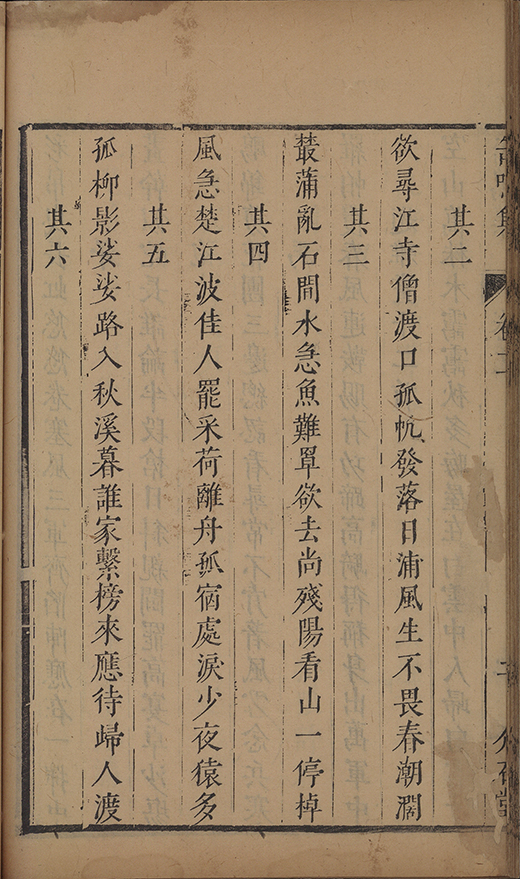 卷二
其二
欲尋江寺僧渡口孤帆發落日浦風生不畏春潮濶
其三
叢蒲亂石間水急魚難罩欲去尚殘陽看山一停棹
其四
風急楚江波佳人罷采荷離舟孤宿處淚少夜猿多
其五
孤柳影娑娑路入秋溪暮誰家繫榜來應待歸人渡
其六